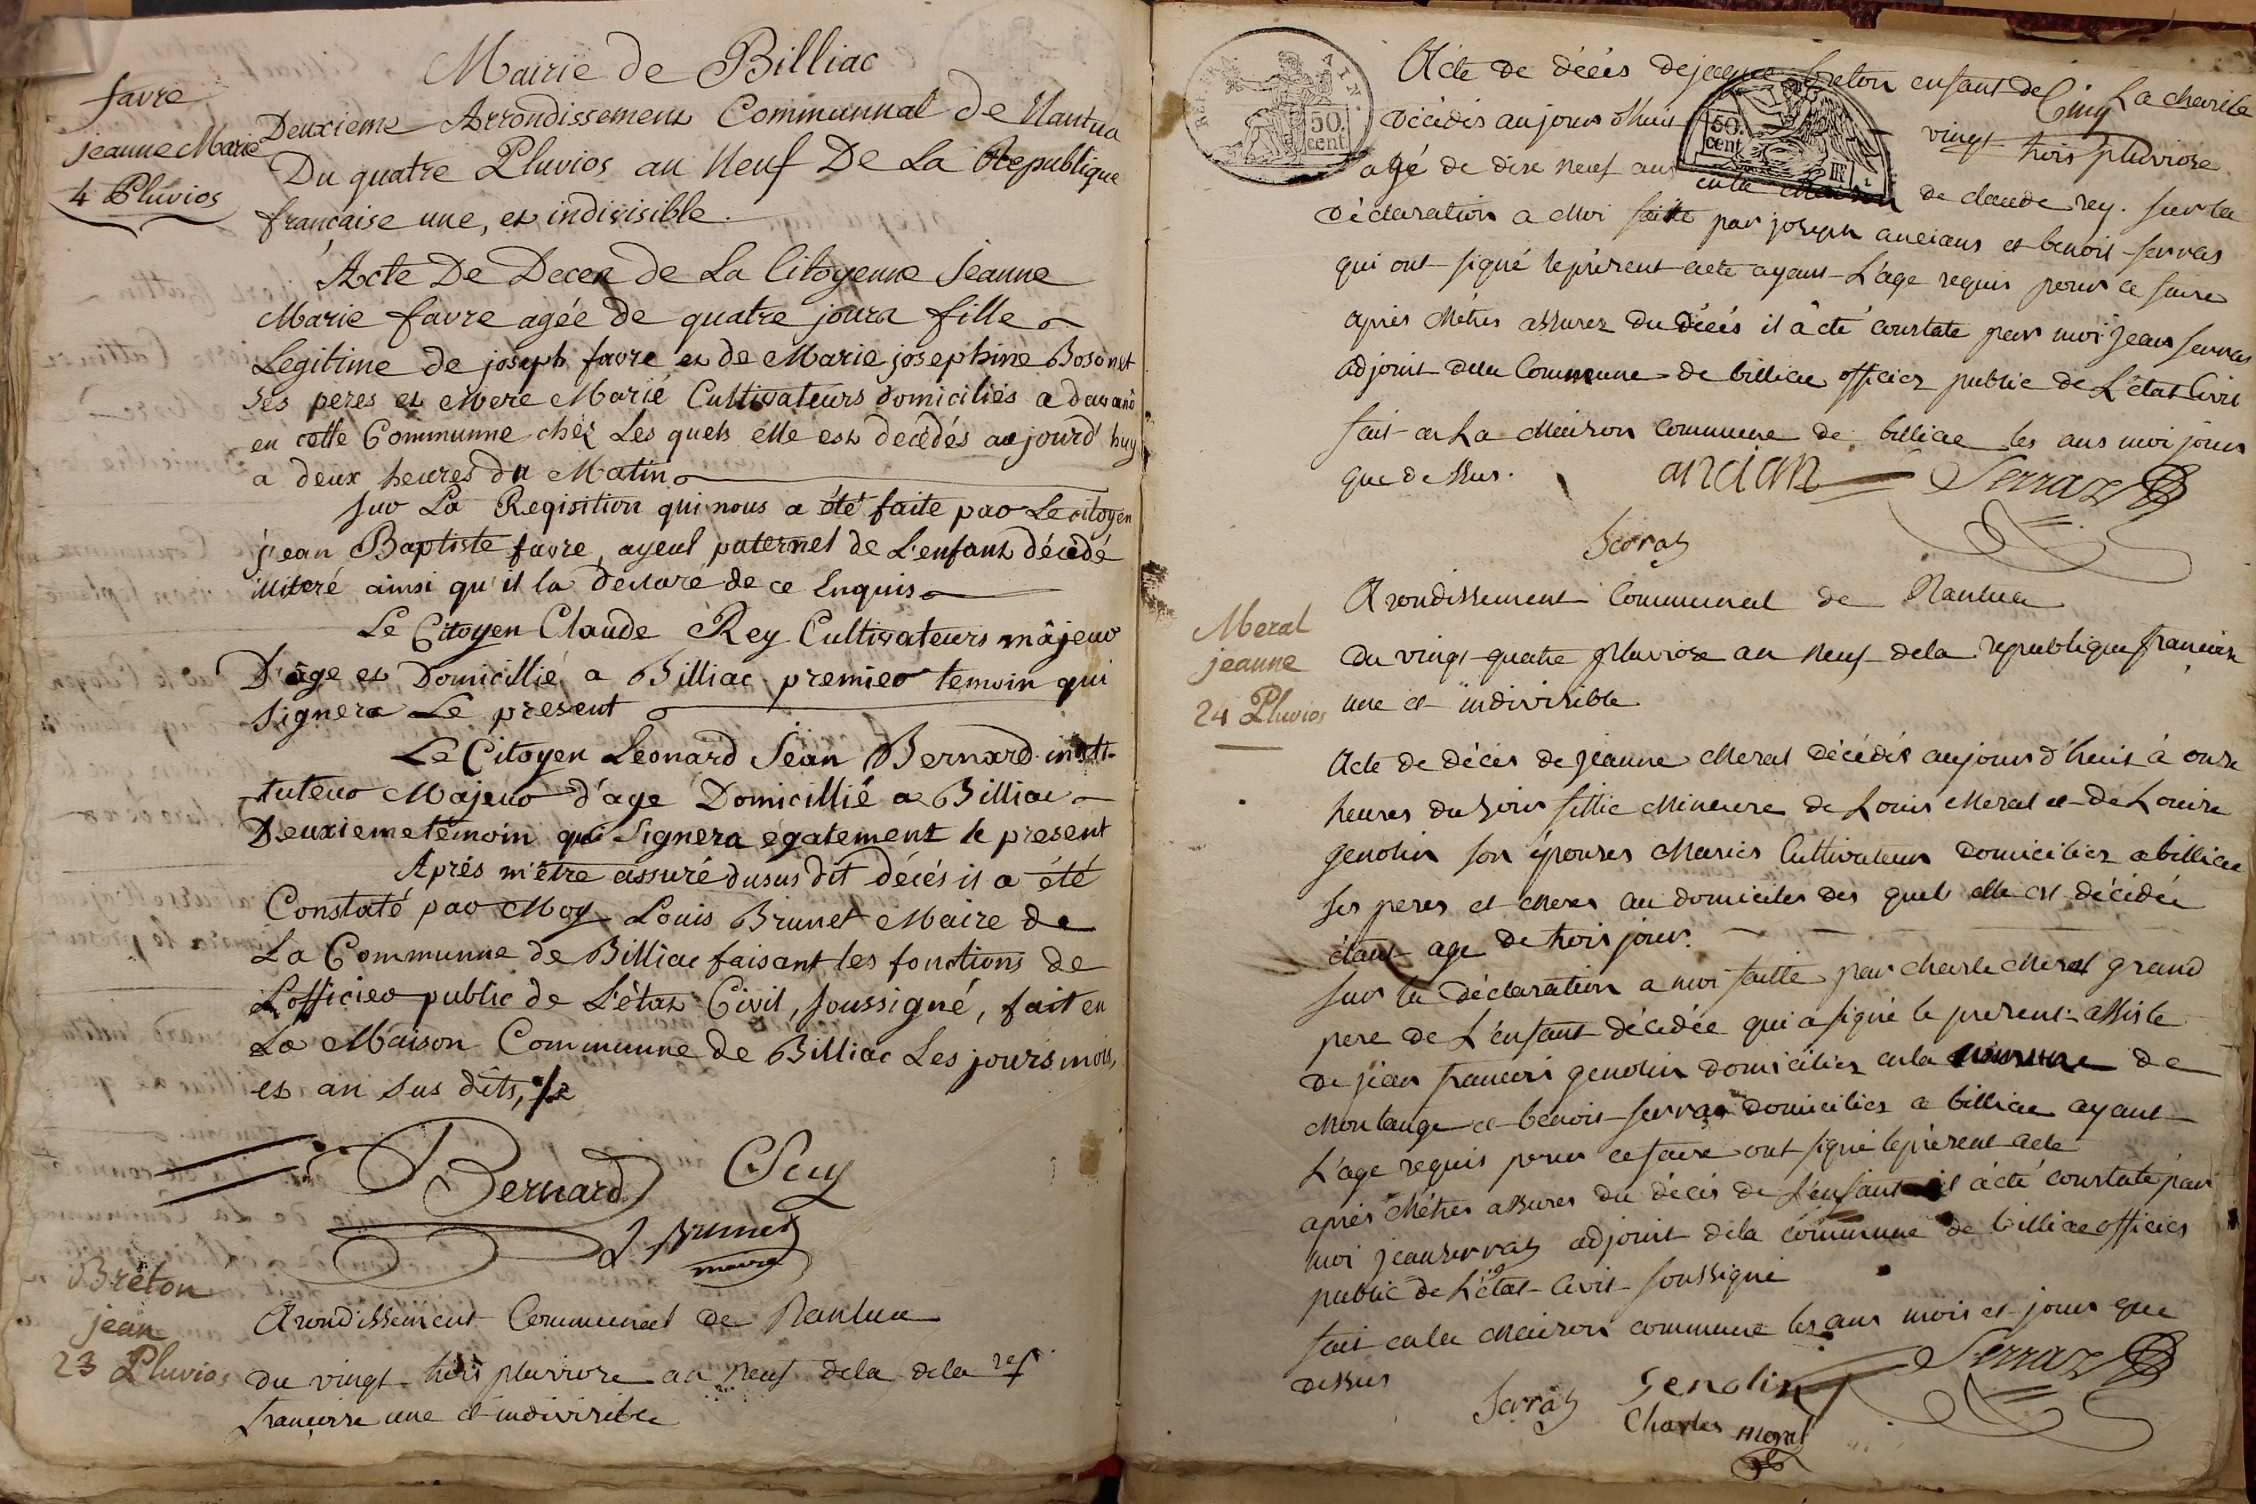 Mairie de Billiac
favre
jeanne Marie
4 Pluvios
Deuxieme Arrondissement Communnal de Nantua
Du quatre Pluvios an Neuf De La Republique
francaise une, et indivisible.
Acte De Deces de La Citoyenne Jeanne
Marie favre agée de quatre jours fille
Legitime de joseph favre et de Marie josephine Bosonet
ses peres et Mere Marié Cultivateurs domiciliés a
en cette Communne chéz Les quels elle est decédés aujourd'huy
a deux heures du Matin
sur La Reqisition qui nous a été faite par Le citoyen
jean Baptiste favre, ayeul paternel de L'enfant décédé
illiteré ainsi qu'il la déclaré de ce Enquis
Le Citoyen Claude Rey Cultivateurs mâjeur
D'âge et Domicillié a Billiac premier temoin qui
signera Le present
Le Citoyen Léonard Jean Bernard insti-
tuteur Majeur d'age Domicillié a Billiac
Deuxieme témoin qui Signera egatement le present
Aprés m'être assuré dusus dit décés il a été
Constaté par Moy Louis Brunet Maire de
La Communne de Billiac faisant les fonctions de
Lofficier public de L'état Civil, soussigné, fait en
La Maison Communne de Billiac Les jours mois,
et an sus dits,
Bernard
L Brunet
maire
Breton
jean
23 Pluvios
Arondissement Communal de Nantua
du vingt trois pluviose an neuf dela dela rep.
francoise une et indivisible
REP. FRA
50.
cent
Acte de décés de jacque breton enfant de La charite
décédés aujours dhuit vingt trois pluviose
50.
cent
agé de dix neuf ans en la maison de claude rey. sur la
déclaration a moi faitte par joseph ancians et benoit serras
qui ont signé le présent acte ayant L'age requis pour ce faire
aprés Métres assurez du décés il a été constaté par moi jean serras
adjoint dela Commune de billiac officier public de L'état Civil
fait en La Maison commune de billiac les ans moi jours
que dessus.
ancian
Serraz
Serras
Meral
jeanne
24 Pluvios
Arondissement Communal de Nantua
du vingt quatre pluviose an neuf dela republique francoise
une et indivisible
Acte de décés de jeanne Meral décédés aujours d'huit à onze
heures du soir fillie Mineure de Louis Meral et de Louise
genolin son épouses Mariés Cultivateurs domiciliez a billiac
ses peres et meres au domiciles des quels elle est décédée
étant age de trois jours.
sur la déclaration a moi faitte par charle Meral grand
pere de L'enfant décédée qui a signé le present assisté
de jean francois genolin domiciliez en la commune de
Montange et benoit serras domiciliez a billiac ayant
L'age requis pour ce faire ont signé le présent acte
aprés Métres assures du décés de L'enfant il a été constaté par
moi jean serras adjoint dela commune de billiac officies
public de L'état Civil soussigné
fait en la Maison commune les ans mois et jours que
dessus
Serras
Genolin
Serraz
Charles Meral